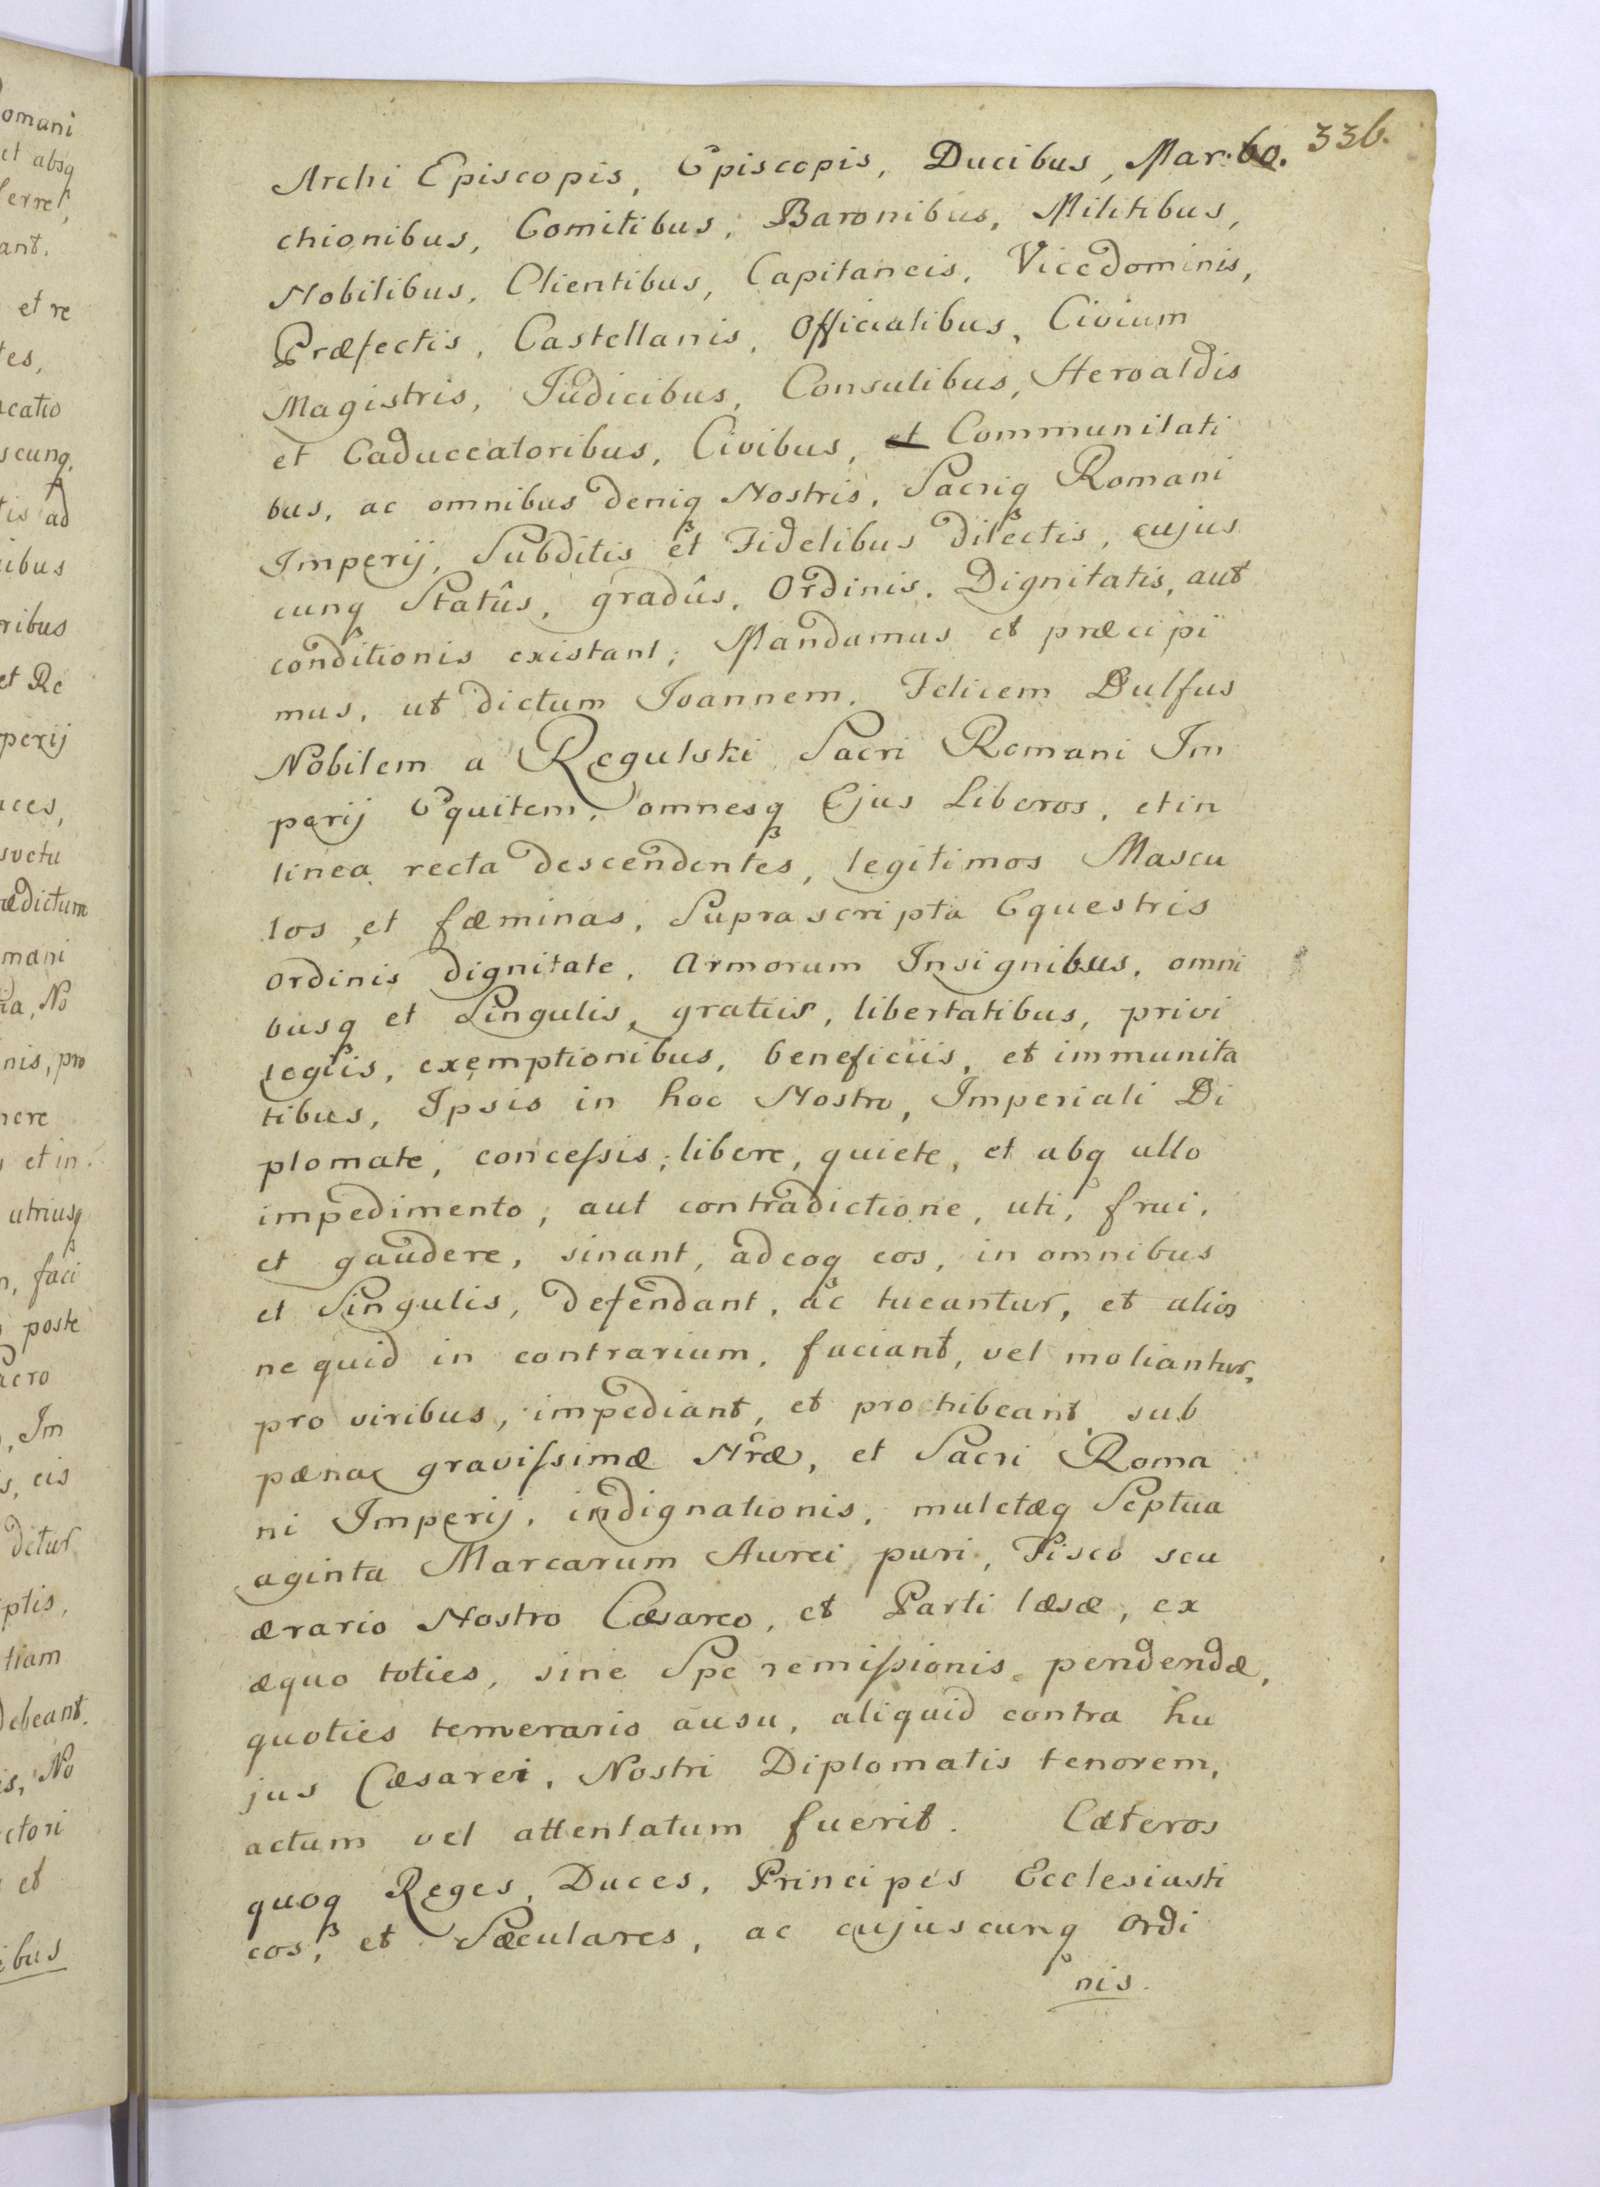 336.
60.
Archi Episcopis, Episcopis, Ducibus, Mar
chionibus, Comitibus, Baronibus, Militibus,
Nobilibus, Clientibus, Capitaneis, Vicedominis,
Præfectis, Castellanis, Officialibus, Civium
Magistris, Judicibus, Consulibus, Heroaldis
et Caduceatoribus, Civibus, et Communitati
bus, ac omnibus deniq Nostris, Sacriq Romani
Imperij, Subditis et Fidelibus dilectis, cujus
cunq Statûs, gradûs, Ordinis, Dignitatis, aut
conditionis existant; Mandamus et præcipi
mus, ut dictum Joannem, Felicem Dulfus
Nobilem a Regulski Sacri Romani Im
perij Equitem, omnesq Ejus Liberos, et in
linea recta descendentes, legitimos Mascu
los et fæminas, Suprascripta Equestris
Ordinis dignitate, Armorum Insignibus, omni
busq et Singulis, gratiis, libertatibus, privi
legiis, exemptionibus, beneficiis, et immunita
tibus, Ipsis in hoc Nostro, Imperiali Di
plomate, concessis, libere, quiete, et abq ullo
impedimento, aut contradictione, uti, frui,
et gaudere, sinant, adeoq eos, in omnibus
et Singulis, defendant, ac tueantur, et alios
ne quid in contrarium, faciant, vel moliantur,
pro viribus, impediant, et prohibeant sub
pæna gravissimæ Nræ, et Sacri Roma
ni Imperij, indignationis, mulctæq Septua
aginta Marcarum Aurei puri, Fisco seu
ærario Nostro Cæsareo, et Parti læsæ, ex
æquo toties, sine Spe remissionis pendendæ,
quoties temerario ausu, aliquid contra hu
jus Cæsarei, Nostri Diplomatis tenorem,
actum vel attentatum fuerit. Cæteros
quoq Reges, Duces, Principes Ecclesiasti
cos, et Sæculares, ac cujuscunq Ordi
nis.